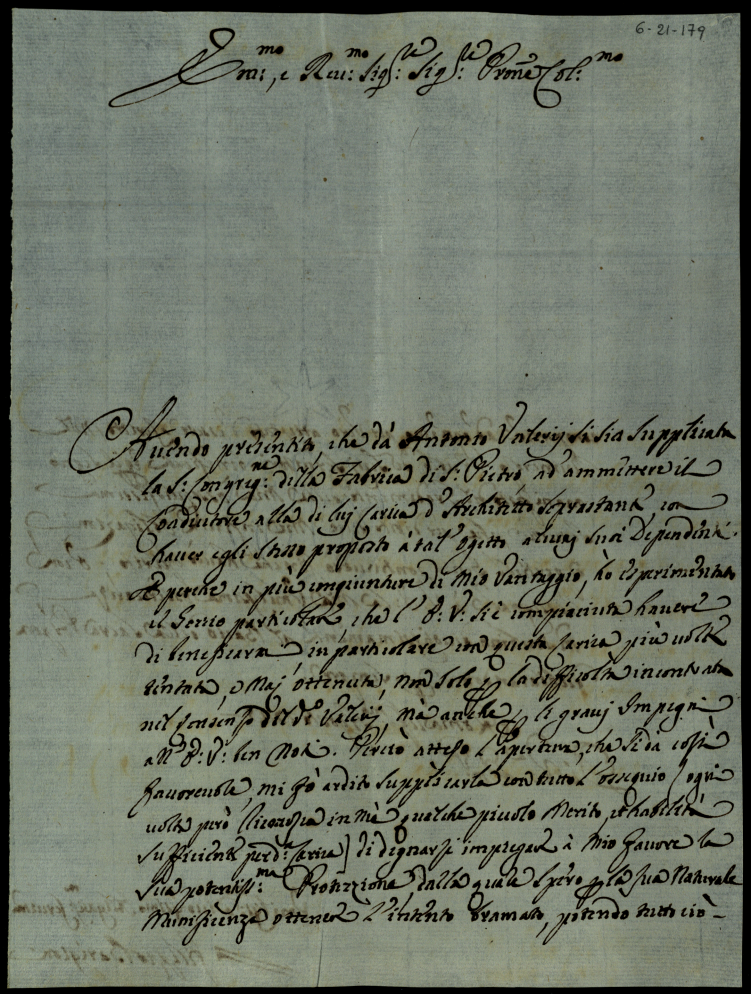 6-21-179
Em:mo, e Reu:mo Sig:re Sig:re Prone Col:mo
Auendo presentito, che dà Antonio Valerij si sia supplicata
la S: Congreg:ne della Fabrica di S: Pietro, ad'ammettere il
Coadiutore alla di luj Carica d'Architetto soprastante, con
hauer egli stesso proposto à tal'ogetto alcunj suoi Dependenti.
E perche in più congiunture di mio Vantaggio, hò esperimentato
il Genio particolare, che l'E: V: si è compiaciuta hauere
di beneficarmi in particolare con questa Carica più uolte
tentata, e maj ottenuta, non solo p la difficoltà incontrata
nel consenso del d:o Valerij, mà anche p li grauj Impegni
a V: E: V: ben noti. Perciò atteso l'apertura, che si dà così
fauoreuole, mi fò ardito supplicarla con tutto l'ossequio (ogni
uolta però riconosca in mè qualche piccolo merito, et habilità
sufficiente per d:a Carica) di degnarsi impiegare à mio fauore la
sua potentiss:ma Protezzione, dalla quale spero p la sua naturale
munificenza ottener l'intento bramato, potendo tutto ciò-